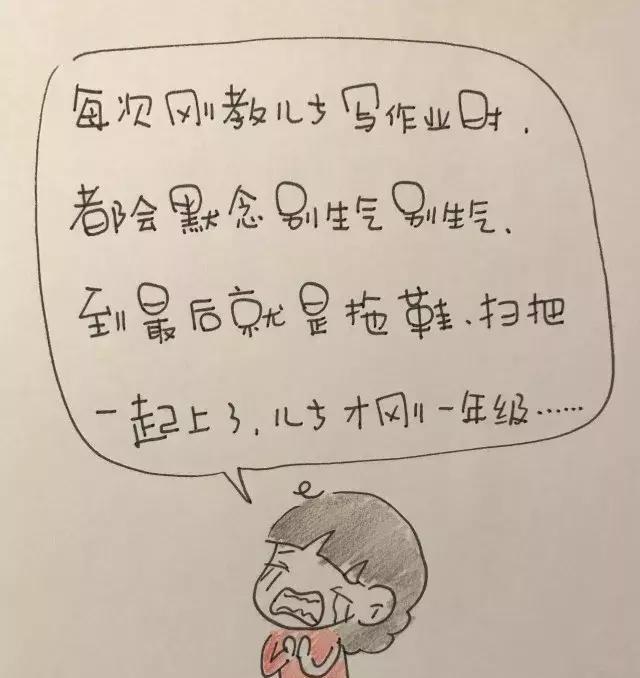 每次刚教儿子写作业时,
都会默念别生气别生气、
到最后就是拖鞋、扫把
一起上了,儿子才刚一年级……